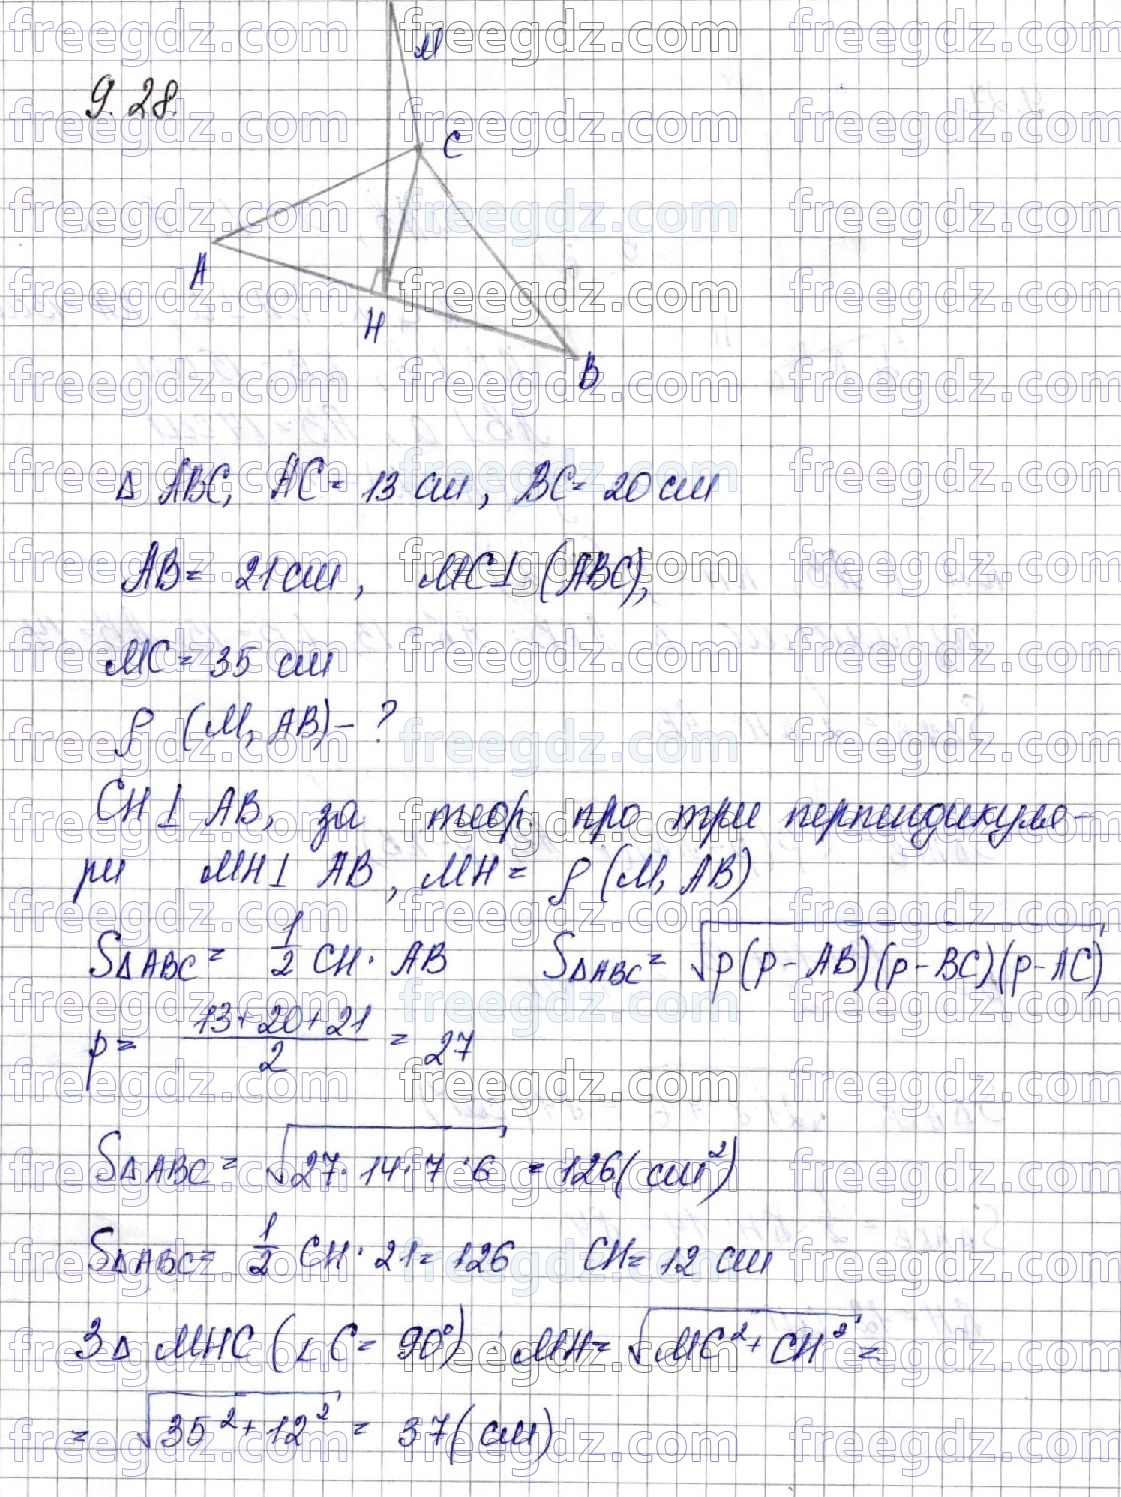 M
9.28.
C
A
H
B
Δ ABC, AC = 13 см, BC = 20 см
AB = 21 см, MC ⊥ (ABC),
MC = 35 см
ρ (M, AB) - ?
CH ⊥ AB, за теор. про три перпендикуля-
ри MH ⊥ AB, MH = ρ (M, AB)
S△ABC = 1/2 CH · AB S△ABC = √p(p - AB)(p - BC)(p - AC)
p = (13+20+21)/2 = 27
S△ABC = √27 · 14 · 7 · 6 = 126 (см²)
S△ABC = 1/2 CH · 21 = 126 CH = 12 см
З Δ MHC (∠C = 90°) MH = √MC² + CH² =
= √35² + 12² = 37 (см)
freegdz.com